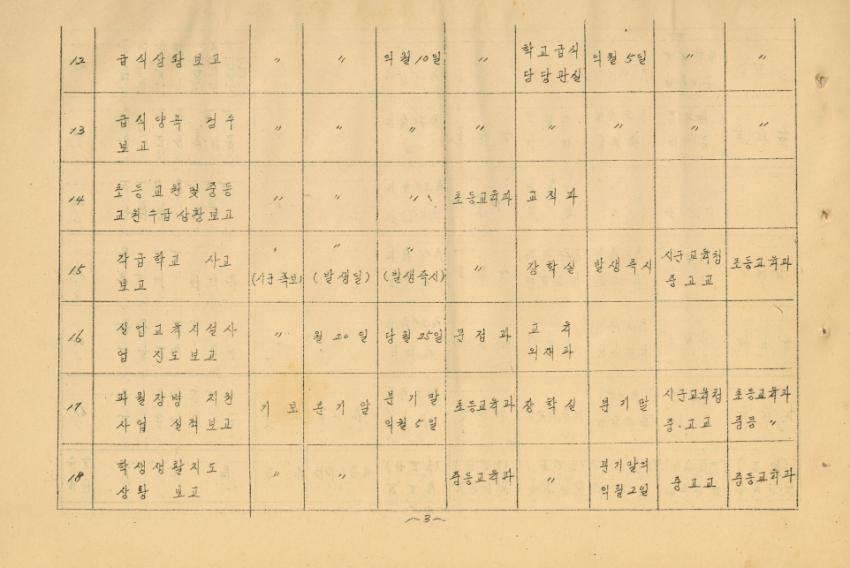 12 급식상황보고 〃 〃 익월10일 〃 학교급식 담당관실 익월5일 〃 〃
13 급식양곡 검수 보고 〃 〃 〃 〃 〃 〃 〃 〃
14 초등교원및중등 교원수급상황보고 〃 〃 〃 초등교육과 교직과
15 각급학교 사고 보고 〃 (시군족보) 〃 (발생일) 〃 (발생즉시) 〃 장학실 발생즉시 시군교육청 중고교 초등교육과
16 실업교육시설사 업 진도보고 〃 월20일 당월25일 문정과 교육
17 사업 실적보고 기보 분기말 분기말 익월5일 초등교육과 장학실 분기말 시군교육청 중.고교 초등교육과 중등 〃
18 학생생활지도 상황 보고 〃 〃 중등교육과 〃 분기말의 익월2일 중고교 중등교육과
~3~